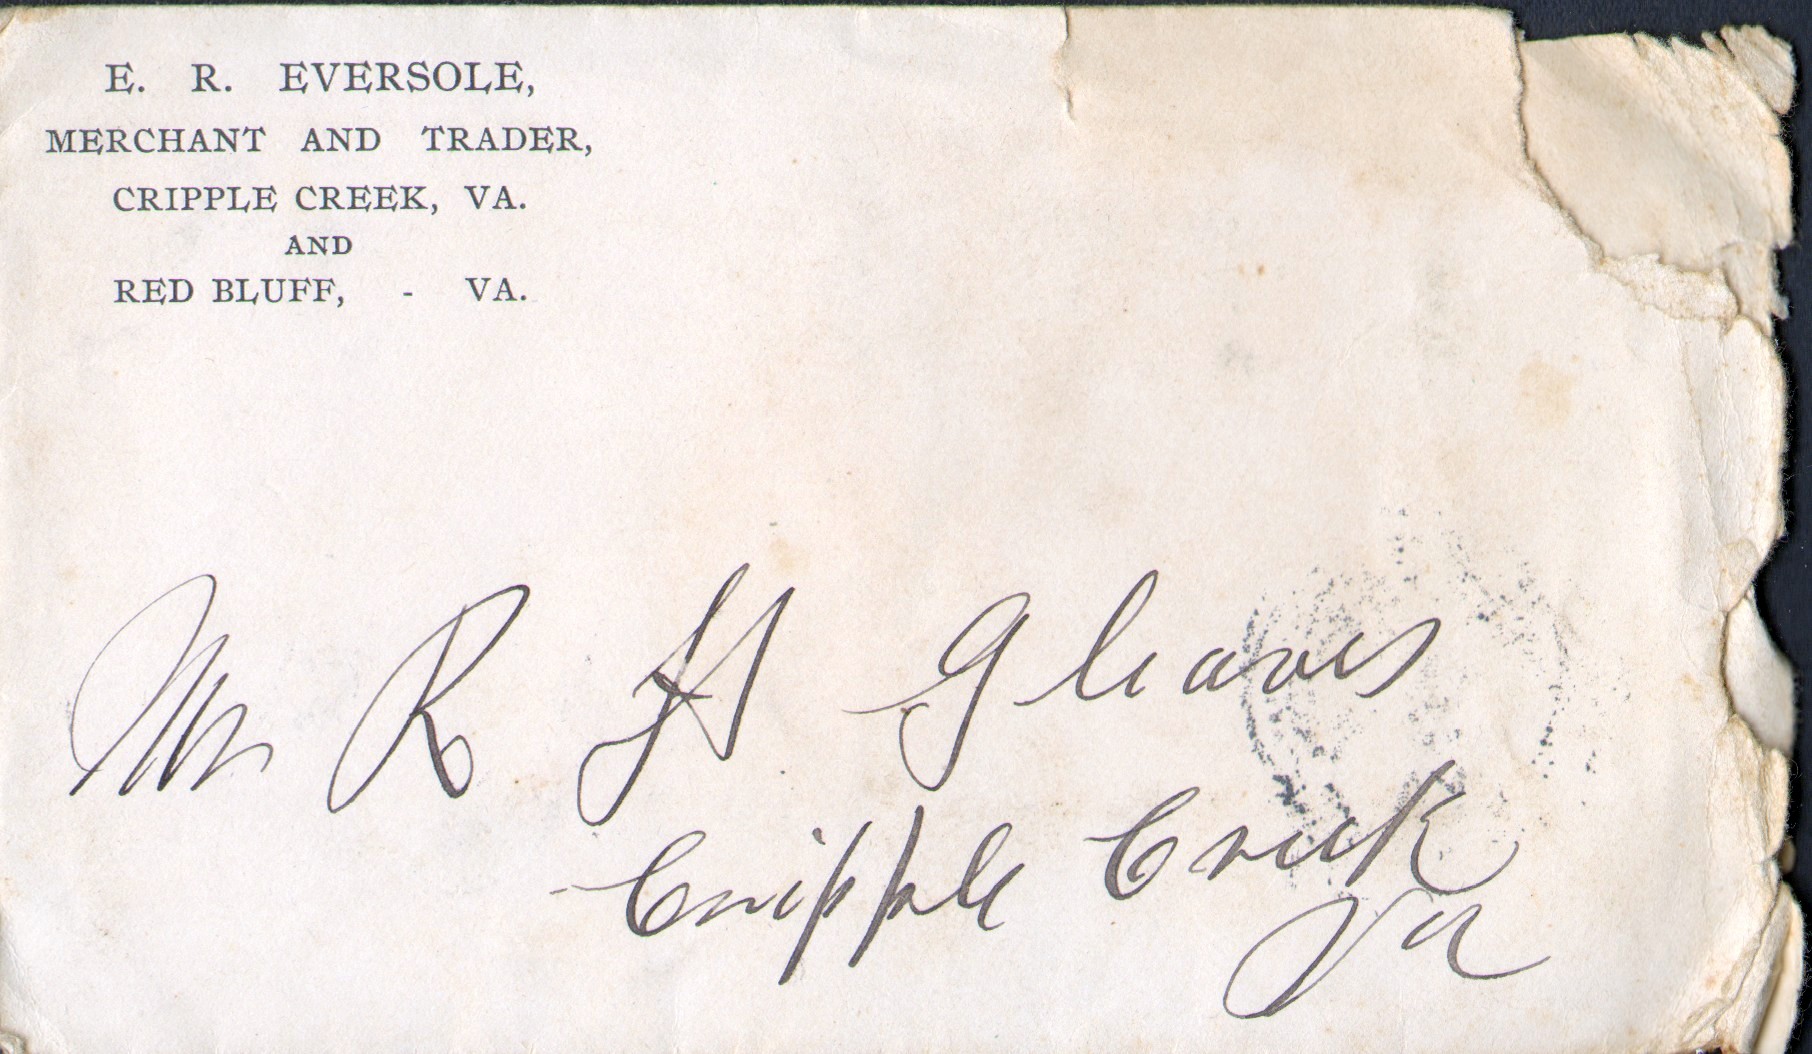 E. R. EVERSOLE,
MERCHANT AND TRADER,
CRIPPLE CREEK, VA.
AND
RED BLUFF, - VA.
Mr R H Gleaves
Cripple Creek
Va